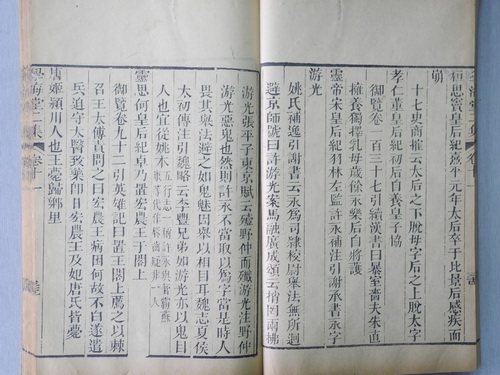 桓思竇皇后紀熹平元年太后卒于比景后感疾而
崩
十七史商榷云太后之下脫母字后之上脫太字
孝仁董皇后紀初后自養皇子協
御覽卷一百三十七引續漢書曰暴室嗇夫朱直
擁養獨擇乳母歲餘永樂后自將護
靈帝宋皇后紀羽林左監許永補注引謝承書永字
游光
姚氏補逸引謝書云永爲司隷校尉奥法無所迴
避京師號曰許游光案馬融廣成頌云捎罔兩拂
游光張平子東京賦云殪野仲而殲游光注野仲
游光惡鬼也然則許永不當取以爲字當是時人
畏其奥法避之如鬼魅因舉以相目耳魏志夏侯
太初傳注引魏略云李豐兄弟如游光亦以鬼目
人也宜從姚本
靈思何皇后紀卓乃置宏農王于閣上
御覽卷九十二引英雄記曰置王閣上薦之以棘
召王太傅責問之曰宏農王病困何故不白遂遣
兵迫守太醫致藥卽日宏農王及妃唐氏皆薨
唐姬潁川人也王薨歸鄉里
學海堂二集
卷十一